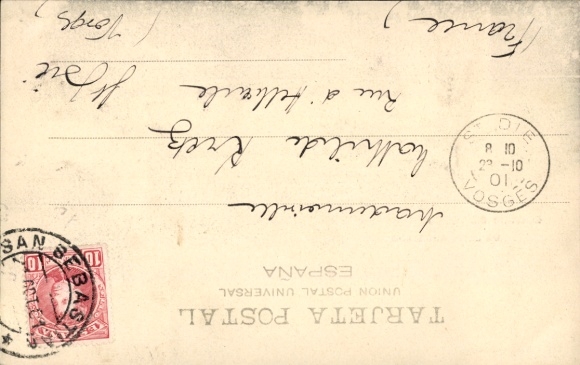 TARJETA POSTAL
UNION POSTAL UNIVERSAL
ESPAÑA
Mademoiselle
Mathilde Kretz
Rue d'Hellieule
St Dié
(Vosges)
(France)
ST DIE
8 10
23 -10
01
VOSGES
SAN SEBAS
10 10